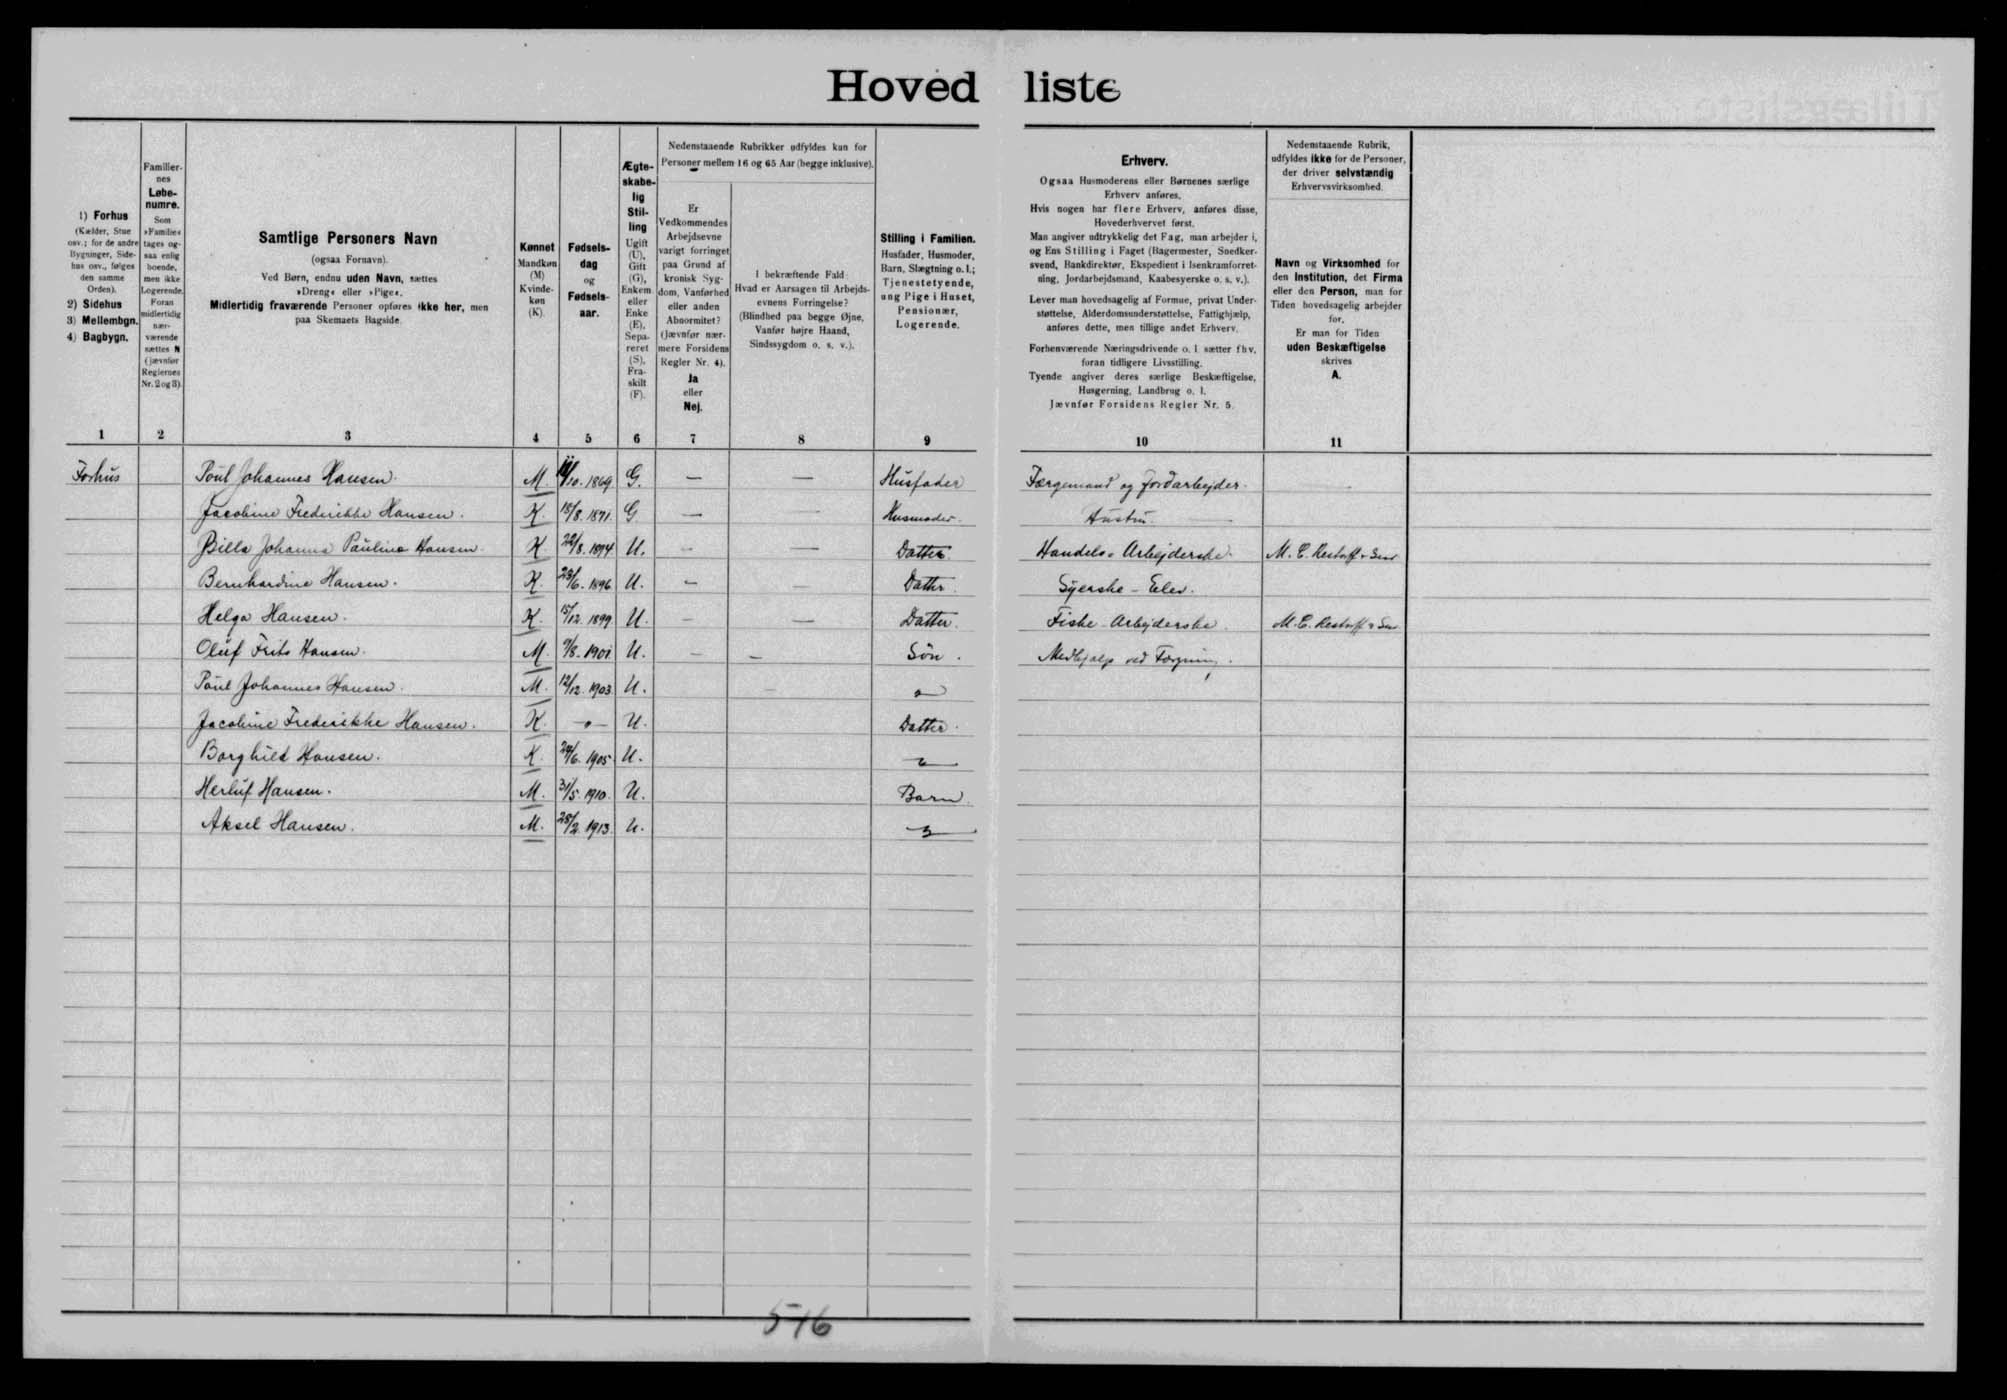 Hovedliste
1) Forhus
(Kælder, Stue
osv.; for de andre
Bygninger, Side-
hus osv., følges
den samme
Orden).
2) Sidehus
3) Mellembgn.
4) Bagbygn.
Familier-
nes
Løbe-
numre.
Som
»Familie«
tages og-
saa enlig
boende,
men ikke
Logerende.
Foran
midlertidig
nær-
værende
sættes N
(jævnfør
Reglernes
Nr. 2 og 3).
Samtlige Personers Navn
(ogsaa Fornavn).
Ved Børn, endnu uden Navn, sættes
»Dreng« eller »Pige«.
Midlertidig fraværende Personer opføres ikke her, men
paa Skemaets Bagside.
Kønnet
Mandkøn
(M)
Kvinde-
køn
(K).
Fødsels-
dag
og
Fødsels-
aar.
Ægte-
skabe-
lig
Stil-
ling
Ugift
(U),
Gift
(G),
Enkem.
eller
Enke
(E),
Sepa-
reret
(S),
Fra-
skilt
(F).
Nedenstaaende Rubrikker udfyldes kun for
Personer mellem 16 og 65 Aar (begge inklusive).
Er
Vedkommendes
Arbejdsevne
varigt forringet
paa Grund af
kronisk Syg-
dom, Vanførhed
eller anden
Abnormitet?
(Jævnfør nær-
mere Forsidens
Regler Nr. 4).
Ja
eller
Nej.
I bekræftende Fald:
Hvad er Aarsagen til Arbejds-
evnens Forringelse?
(Blindhed paa begge Øjne,
Vanfør højre Haand,
Sindssygdom o. s. v.).
Stilling i Familien.
Husfader, Husmoder,
Barn, Slægtning o. l.;
Tjenestetyende,
ung Pige i Huset,
Pensionær,
Logerende.
Erhverv.
Ogsaa Husmoderens eller Børnenes særlige
Erhverv anføres.
Hvis nogen har flere Erhverv, anføres disse,
Hovederhvervet først.
Man angiver udtrykkelig det Fag, man arbejder i,
og Ens Stilling i Faget (Bagermester, Snedker-
svend, Bankdirektør, Ekspedient i Isenkramforret-
ning, Jordarbejdsmand, Kaabesyerske o. s. v.).
Lever man hovedsagelig af Formue, privat Under-
støttelse, Alderdomsunderstøttelse, Fattighjælp,
anføres dette, men tillige andet Erhverv.
Forhenværende Næringsdrivende o. l. sætter fhv.
foran tidligere Livsstilling.
Tyende angiver deres særlige Beskæftigelse,
Husgerning, Landbrug o. l.
Jævnfør Forsidens Regler Nr. 5.
Nedenstaaende Rubrik,
udfyldes ikke for de Personer,
der driver selvstændig
Erhvervsvirksomhed.
Navn og Virksomhed for
den Institution, det Firma
eller den Person, man for
Tiden hovedsagelig arbejder
for.
Er man for Tiden
uden Beskæftigelse
skrives
A.
1 2 3 4 5 6 7 8 9 10 11
Forhus Poul Johannes Hansen. M. /10. 1869. G. — — Husfader Færgemand og Jordarbejder.
Jacobine Frederikke Hansen. K. 18/8. 1871. G — — Husmoder. Hustru
Billa Johanna Pauline Hansen. K 22/8. 1894 U. — — Datter Handels-Arbejderske. M. C. Restorff & Søn
Bernhardine Hansen. K. 23/6. 1896 U. — — Datter. Syerske-Elev.
Helga Hansen. K. 15/12. 1899. U. — — Datter. Fiske-Arbejderske. M. C. Restorff & Søn
Oluf Frits Hansen. M. 9/8. 1901. U. — — Søn. Medhjælp ved Færgning.
Poul Johannes Hansen. M. 12/12. 1903. U. — —"—
Jacobine Frederikke Hansen. K. —"— U. Datter.
Borghild Hansen. K. 29/6. 1905. U. —"—
Herluf Hansen. M. 31/5. 1910. U. Barn.
Aksel Hansen. M. 28/2. 1913. U. —"—
546